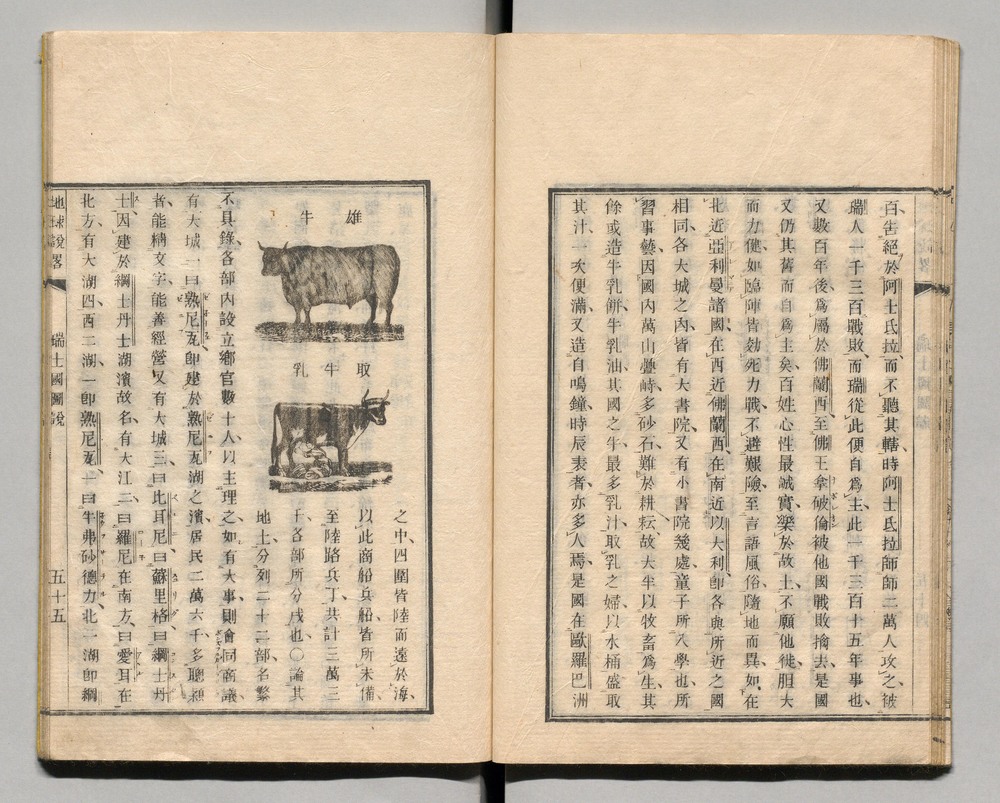 百呰絕於阿士氏拉而不聽其轄時阿士氏拉師師二萬人攻之被
瑞人一千三百戰敗而瑞從此便自爲主此一千三百十五年事也
又數百年後爲屬於佛蘭西至佛王拿破倫被他國戰敗擒去是國
又仍其舊而自爲主矣百姓心性最誠實樂於故土不願他徙胆大
而力健如臨陣皆効死力戰不避艱險至言語風俗隨地而異如在
北近亞利曼諸國在西近佛蘭西在南近以大利卽各與所近之國
相同各大城之內皆有大書院又有小書院幾處童子所入學也所
習事藝因國內萬山疊峙多砂石難於耕耘故大半以牧畜爲生其
餘或造牛乳餅牛乳油其國之牛最多乳汁取乳之婦以水桶盛取
其汁一次便滿又造自鳴鐘時辰表者亦多人焉是國在歐羅巴洲
雄牛
取牛乳
之中四圍皆陸而遠於海
以此商船兵船皆所未備
至陸路兵丁共計三萬三
千各部所分戍也〇論其
地土分列二十二部名繁
不具錄各部內設立鄉官數十人以主理之如有大事則會同商議
有大城一曰熱尼瓦卽建於熱尼瓦湖之濱居民二萬六千多聰
者能精文字能善經營又有大城三曰比耳尼曰蘇里格曰綱士丹
士因建於綱士丹士湖濱故名有大江二曰羅尼在南方曰愛耳在
北方有大湖四西二湖一卽熱尼瓦一曰牛弗砂德力北一湖卽綱
地球說畧
瑞士國圖說
五十五